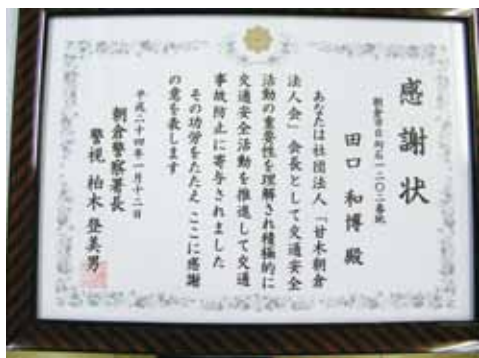 感謝状
田口和博殿
あなたは社団法人「甘木朝倉
法人会」会長として交通安全
活動の重要性を理解され積極的に
交通安全活動を推進して交通
事故防止に寄与されました
その功労をたたえここに感謝
の意を表します
平成二十四年一月十二日
朝倉警察署長
警視 柏木登美男